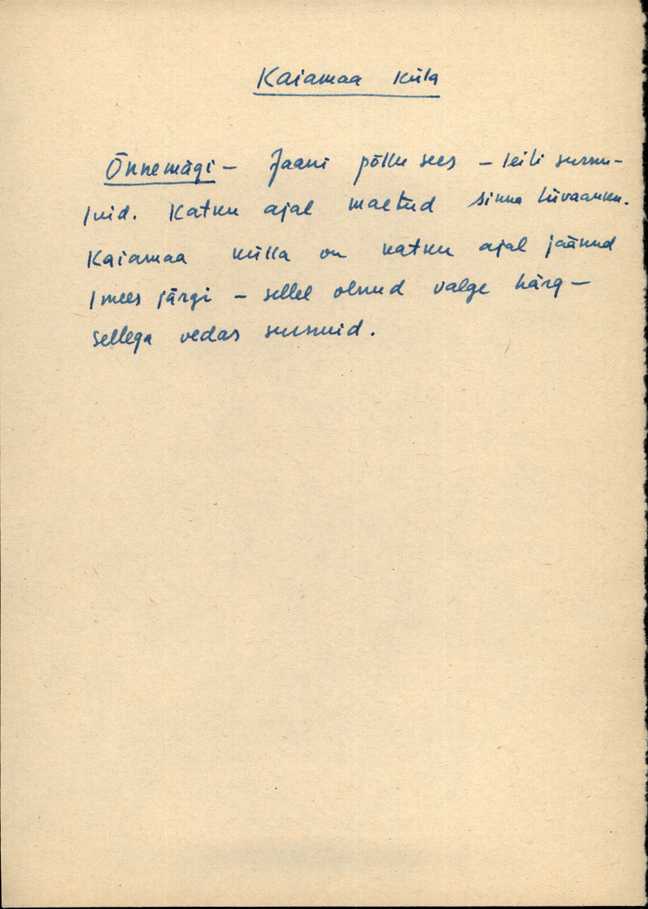 Kaiamaa küla
Õnnemägi – Jaani põllu sees – leiti surnu-
luid. Katku ajal maetud sinna liivaauku.
Kaiamaa külla on katku ajal jäänud
1 mees järgi – sellel olnud valge härg –
sellega vedas surnuid.